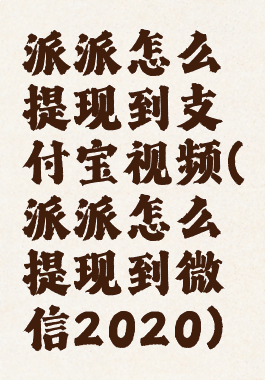 派派怎么
提现到支
付宝视频(
派派怎么
提现到微
信2020)